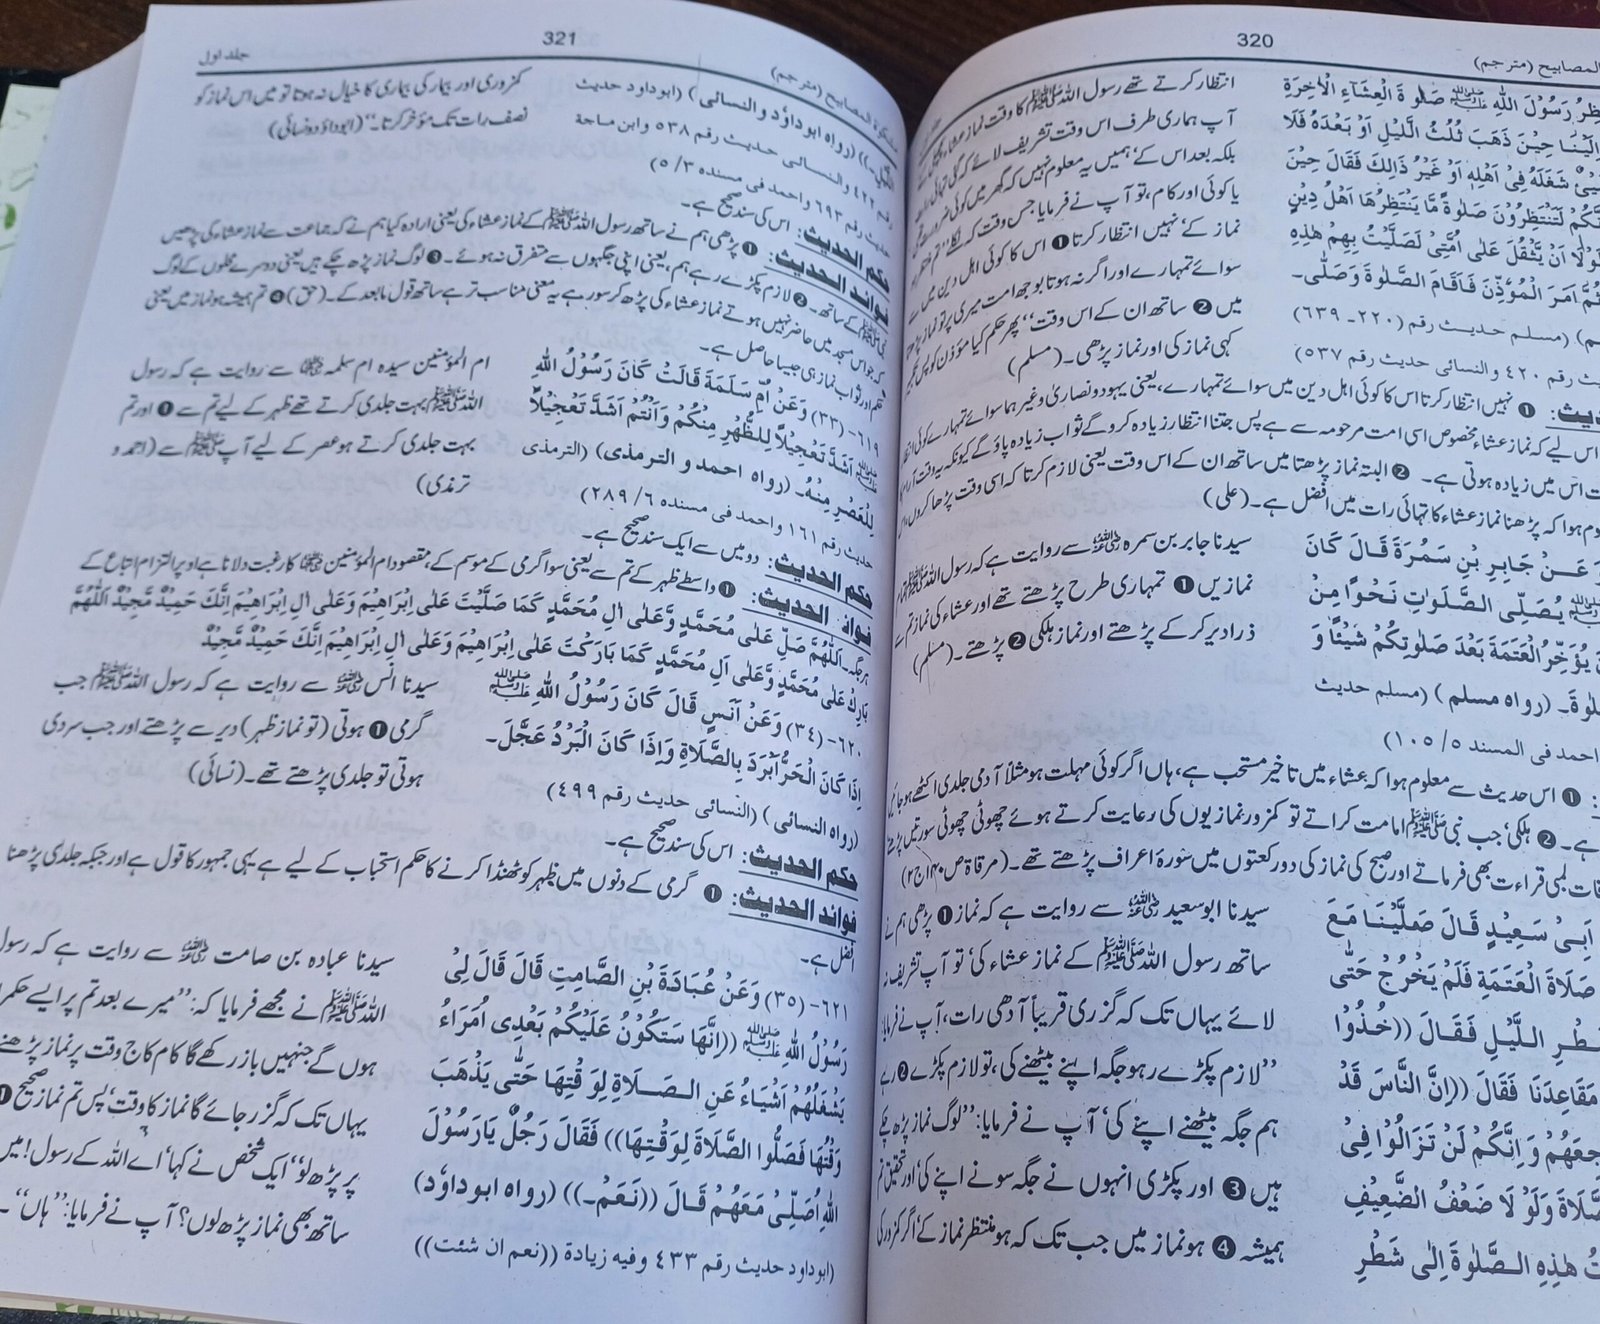 320
المصابيح (مترجم)
انتظار کرتے تھے رسول اللہ ﷺ کا وقت نماز عشاء
رَسُوْلَ اللّٰهِ ﷺ صَلٰوةَ الْعِشَآءِ الْاٰخِرَةِ
آپ ہماری طرف اس وقت تشریف لائے کہ گئی تہائی رات
اِلَيْنَا حِيْنَ ذَهَبَ ثُلُثُ اللَّيْلِ اَوْ بَعْدَهٗ فَلَا
بلکہ بعد اس کے‘ ہمیں یہ معلوم نہیں کہ گھر میں کوئی
شَغَلَهٗ فِىْ اَهْلِهٖ اَوْ غَيْرُ ذَالِكَ فَقَالَ حِيْنَ
یا کوئی اور کام، تو آپ نے فرمایا جس وقت کہ نکلے‘
لَتَنْتَظِرُوْنَ صَلٰوةً مَّا يَنْتَظِرُهَا اَهْلُ دِيْنٍ
نماز کے‘ نہیں انتظار کرتا ❶ اس کا کوئی اہل دین میں سے
اَنْ يَّثْقُلَ عَلٰى اُمَّتِىْ لَصَلَّيْتُ بِهِمْ هٰذِهِ
سوائے تمہارے اور اگر نہ ہوتا بوجھ امت میری پر تو نماز پڑھتا
ثُمَّ اَمَرَ الْمُؤَذِّنَ فَاَقَامَ الصَّلٰوةَ وَصَلّٰى۔
میں ❷ ساتھ ان کے اس وقت‘‘ پھر حکم کیا مؤذن کو پس
(مسلم حديث رقم (٢٢٠۔ ٦٣٩)
کہی نماز کی اور نماز پڑھی۔ (مسلم)
رقم ٤٢٠ والنسائى حديث رقم ٥٣٧)
❶ نہیں انتظار کرتا اس کا کوئی اہل دین میں سوائے تمہارے، یعنی یہود و نصاریٰ وغیرہما سوائے تمہارے کوئی
اس لیے کہ نماز عشاء مخصوص اسی امت مرحومہ سے ہے پس جتنا انتظار زیادہ کرو گے ثواب زیادہ پاؤ گے کیونکہ یہ وقت آرام کا
اس میں زیادہ ہوتی ہے۔ ❷ البتہ نماز پڑھتا میں ساتھ ان کے اس وقت یعنی لازم کرتا کہ اسی وقت پڑھا کروں،
ہوا کہ پڑھنا نماز عشاء کا تہائی رات میں افضل ہے۔ (علی)
سیدنا جابر بن سمرہ ؓ سے روایت ہے کہ رسول اللہ ﷺ تمام
عَنْ جَابِرِ بْنِ سَمُرَةَ قَالَ كَانَ
نمازیں ❶ تمہاری طرح پڑھتے تھے اور عشاء کی نماز تم سے
ﷺ يُصَلِّى الصَّلَوٰتِ نَحْوًا مِّنْ
ذرا دیر کر کے پڑھتے اور نماز ہلکی ❷ پڑھتے۔ (مسلم)
يُؤَخِّرُ الْعَتَمَةَ بَعْدَ صَلٰوتِكُمْ شَيْئًا وَ
(رواه مسلم) (مسلم حديث
احمد فى المسند ٥/ ١٠٥)
❶ اس حدیث سے معلوم ہوا کہ عشاء میں تاخیر مستحب ہے، ہاں اگر کوئی مہلت ہو مثلاً آدمی جلدی اکٹھے ہو جائیں
ہے۔ ❷ ہلکی‘ جب نبی ﷺ امامت کراتے تو کمزور نمازیوں کی رعایت کرتے ہوئے چھوٹی چھوٹی سورتیں پڑھتے
لمبی قراءت بھی فرماتے اور صبح کی نماز کی دو رکعتوں میں سورۂ اعراف پڑھتے تھے۔ (مرقاۃ ص ۱۴۰ ج ۲)
سیدنا ابو سعید ؓ سے روایت ہے کہ نماز ❶ پڑھی ہم نے
اَبِىْ سَعِيْدٍ قَالَ صَلَّيْنَا مَعَ
ساتھ رسول اللہ ﷺ کے نماز عشاء کی‘ تو آپ تشریف نہ
صَلَاةَ الْعَتَمَةِ فَلَمْ يَخْرُجْ حَتّٰى
لائے یہاں تک کہ گزری قریباً آدھی رات، آپ نے فرمایا:
شَطْرِ اللَّيْلِ فَقَالَ ((خُذُوْا
’’لازم پکڑے رہو جگہ اپنے بیٹھنے کی، تو لازم پکڑے ❷ رہے
مَقَاعِدَنَا فَقَالَ ((اِنَّ النَّاسَ قَدْ
ہم جگہ بیٹھنے اپنے کی‘ آپ نے فرمایا: ’’لوگ نماز پڑھ چکے
وَاِنَّكُمْ لَنْ تَزَالُوْا فِىْ
ہیں ❸ اور پکڑی انہوں نے جگہ سونے اپنے کی اور تحقیق تم
وَلَوْ لَا ضَعْفُ الضَّعِيْفِ
ہمیشہ ❹ ہو نماز میں جب تک کہ ہو منتظر نماز کے‘ اگر کمزور کی
هٰذِهِ الصَّلٰوةَ اِلٰى شَطْرِ
321
جلد اول
مشكوٰة المصابيح (مترجم)
کمزوری اور بیمار کی بیماری کا خیال نہ ہوتا تو میں اس نماز کو
اللَّيْلِ۔)) (رواه ابوداوٗد والنسائى) (ابوداود حديث
نصف رات تک مؤخر کرتا۔‘‘ (ابوداؤد و نسائی)
رقم ٤٢٢ والنسائى حديث رقم ٥٣٨ وابن ماجة
حديث رقم ٦٩٣ واحمد فى مسنده ٣/ ٥)
حكم الحديث: اس کی سند صحیح ہے۔
فوائد الحديث: ❶ پڑھی ہم نے ساتھ رسول اللہ ﷺ کے نماز عشاء کی یعنی ارادہ کیا ہم نے کہ جماعت سے نماز عشاء کی پڑھیں
نبی ﷺ کے ساتھ۔ ❷ لازم پکڑے رہے ہم، یعنی اپنی جگہوں سے متفرق نہ ہوئے۔ ❸ لوگ نماز پڑھ چکے ہیں یعنی دوسرے محلوں کے لوگ
کہ جو اس مسجد میں حاضر نہیں ہوتے نماز عشاء کی پڑھ کر سو رہے یہ معنی مناسب تر ہے ساتھ قول مابعد کے۔ (حق) ❹ تم ہمیشہ ہو نماز میں یعنی
حکم اور ثواب نماز ہی جیسا حاصل ہے۔
ام المؤمنین سیدہ ام سلمہ ؓ سے روایت ہے کہ رسول
٦١٩۔ (٣٣) وَعَنْ اُمِّ سَلَمَةَ قَالَتْ كَانَ رَسُوْلُ اللّٰهِ
اللہ ﷺ بہت جلدی کرتے تھے ظہر کے لیے تم سے ❶ اور تم
ﷺ اَشَدَّ تَعْجِيْلًا لِلظُّهْرِ مِنْكُمْ وَاَنْتُمْ اَشَدُّ تَعْجِيْلًا
بہت جلدی کرتے ہو عصر کے لیے آپ ﷺ سے (احمد و
لِلْعَصْرِ مِنْهُ۔ (رواه احمد و الترمذى) (الترمذى
ترمذی)
حديث رقم ١٦١ واحمد فى مسنده ٦/ ٢٨٩)
حكم الحديث: دو میں سے ایک سند صحیح ہے۔
فوائد الحديث: ❶ واسطے ظہر کے تم سے یعنی سوا گرمی کے موسم کے، مقصود ام المؤمنین ؓ کا رغبت دلانا ہے اوپر التزام اتباع کے
ہر جگہ۔ اَللّٰهُمَّ صَلِّ عَلٰى مُحَمَّدٍ وَّعَلٰى اٰلِ مُحَمَّدٍ كَمَا صَلَّيْتَ عَلٰى اِبْرَاهِيْمَ وَعَلٰى اٰلِ اِبْرَاهِيْمَ اِنَّكَ حَمِيْدٌ مَّجِيْدٌ اَللّٰهُمَّ
بَارِكْ عَلٰى مُحَمَّدٍ وَّعَلٰى اٰلِ مُحَمَّدٍ كَمَا بَارَكْتَ عَلٰى اِبْرَاهِيْمَ وَعَلٰى اٰلِ اِبْرَاهِيْمَ اِنَّكَ حَمِيْدٌ مَّجِيْدٌ
سیدنا انس ؓ سے روایت ہے کہ رسول اللہ ﷺ جب
٦٢٠۔ (٣٤) وَعَنْ اَنَسٍ قَالَ كَانَ رَسُوْلُ اللّٰهِ ﷺ
گرمی ❶ ہوتی (تو نماز ظہر) دیر سے پڑھتے اور جب سردی
اِذَا كَانَ الْحَرُّ اَبْرَدَ بِالصَّلَاةِ وَاِذَا كَانَ الْبَرْدُ عَجَّلَ۔
ہوتی تو جلدی پڑھتے تھے۔ (نسائی)
(رواه النسائى) (النسائى حديث رقم ٤٩٩)
حكم الحديث: اس کی سند صحیح ہے۔
فوائد الحديث: ❶ گرمی کے دنوں میں ظہر کو ٹھنڈا کرنے کا حکم استحباب کے لیے ہے یہی جمہور کا قول ہے اور جبکہ جلدی پڑھنا
افضل ہے۔
سیدنا عبادہ بن صامت ؓ سے روایت ہے کہ رسول
٦٢١۔ (٣٥) وَعَنْ عُبَادَةَ بْنِ الصَّامِتِ قَالَ قَالَ لِىْ
اللہ ﷺ نے مجھے فرمایا کہ: ’’میرے بعد تم پر ایسے حکمران
رَسُوْلُ اللّٰهِ ﷺ ((اِنَّهَا سَتَكُوْنُ عَلَيْكُمْ بَعْدِى اُمَرَاءُ
ہوں گے جنہیں باز رکھے گا کام کاج وقت پر نماز پڑھنے
يَشْغَلُهُمْ اَشْيَاءُ عَنِ الصَّلَاةِ لِوَقْتِهَا حَتّٰى يَذْهَبَ
یہاں تک کہ گزر جائے گا نماز کا وقت‘ پس تم نماز صحیح ❶
وَقْتُهَا فَصَلُّوا الصَّلَاةَ لِوَقْتِهَا)) فَقَالَ رَجُلٌ يَارَسُوْلَ
پر پڑھ لو‘‘ ایک شخص نے کہا‘ اے اللہ کے رسول! میں
اللّٰهِ اُصَلِّىْ مَعَهُمْ قَالَ ((نَعَمْ۔)) (رواه ابوداوٗد)
ساتھ بھی نماز پڑھ لوں؟ آپ نے فرمایا: ’’ہاں‘‘۔
(ابوداود حديث رقم ٤٣٣ وفيه زيادة ((نعم ان شئت))